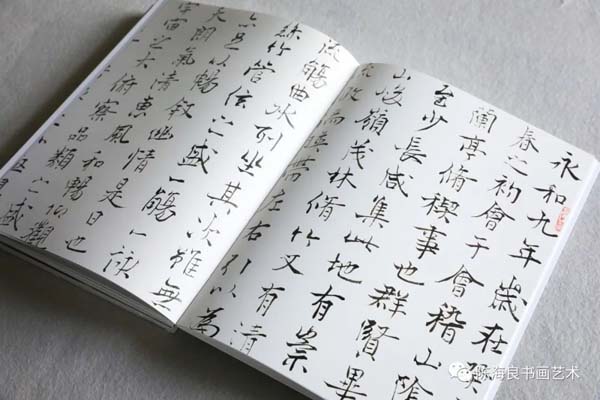 永和九年歲在
春之初會于會稽山陰
蘭亭脩稧事也群賢畢
至少長咸集此地有崇
山峻嶺茂林脩竹又有清
帶左右引以為
流觴曲水列坐其次雖無
絲竹管弦之盛一觴一詠
亦足以暢敘幽情是日也
天朗氣清惠風和暢仰觀
宇宙之大俯察品類之盛
陈海良书画艺术